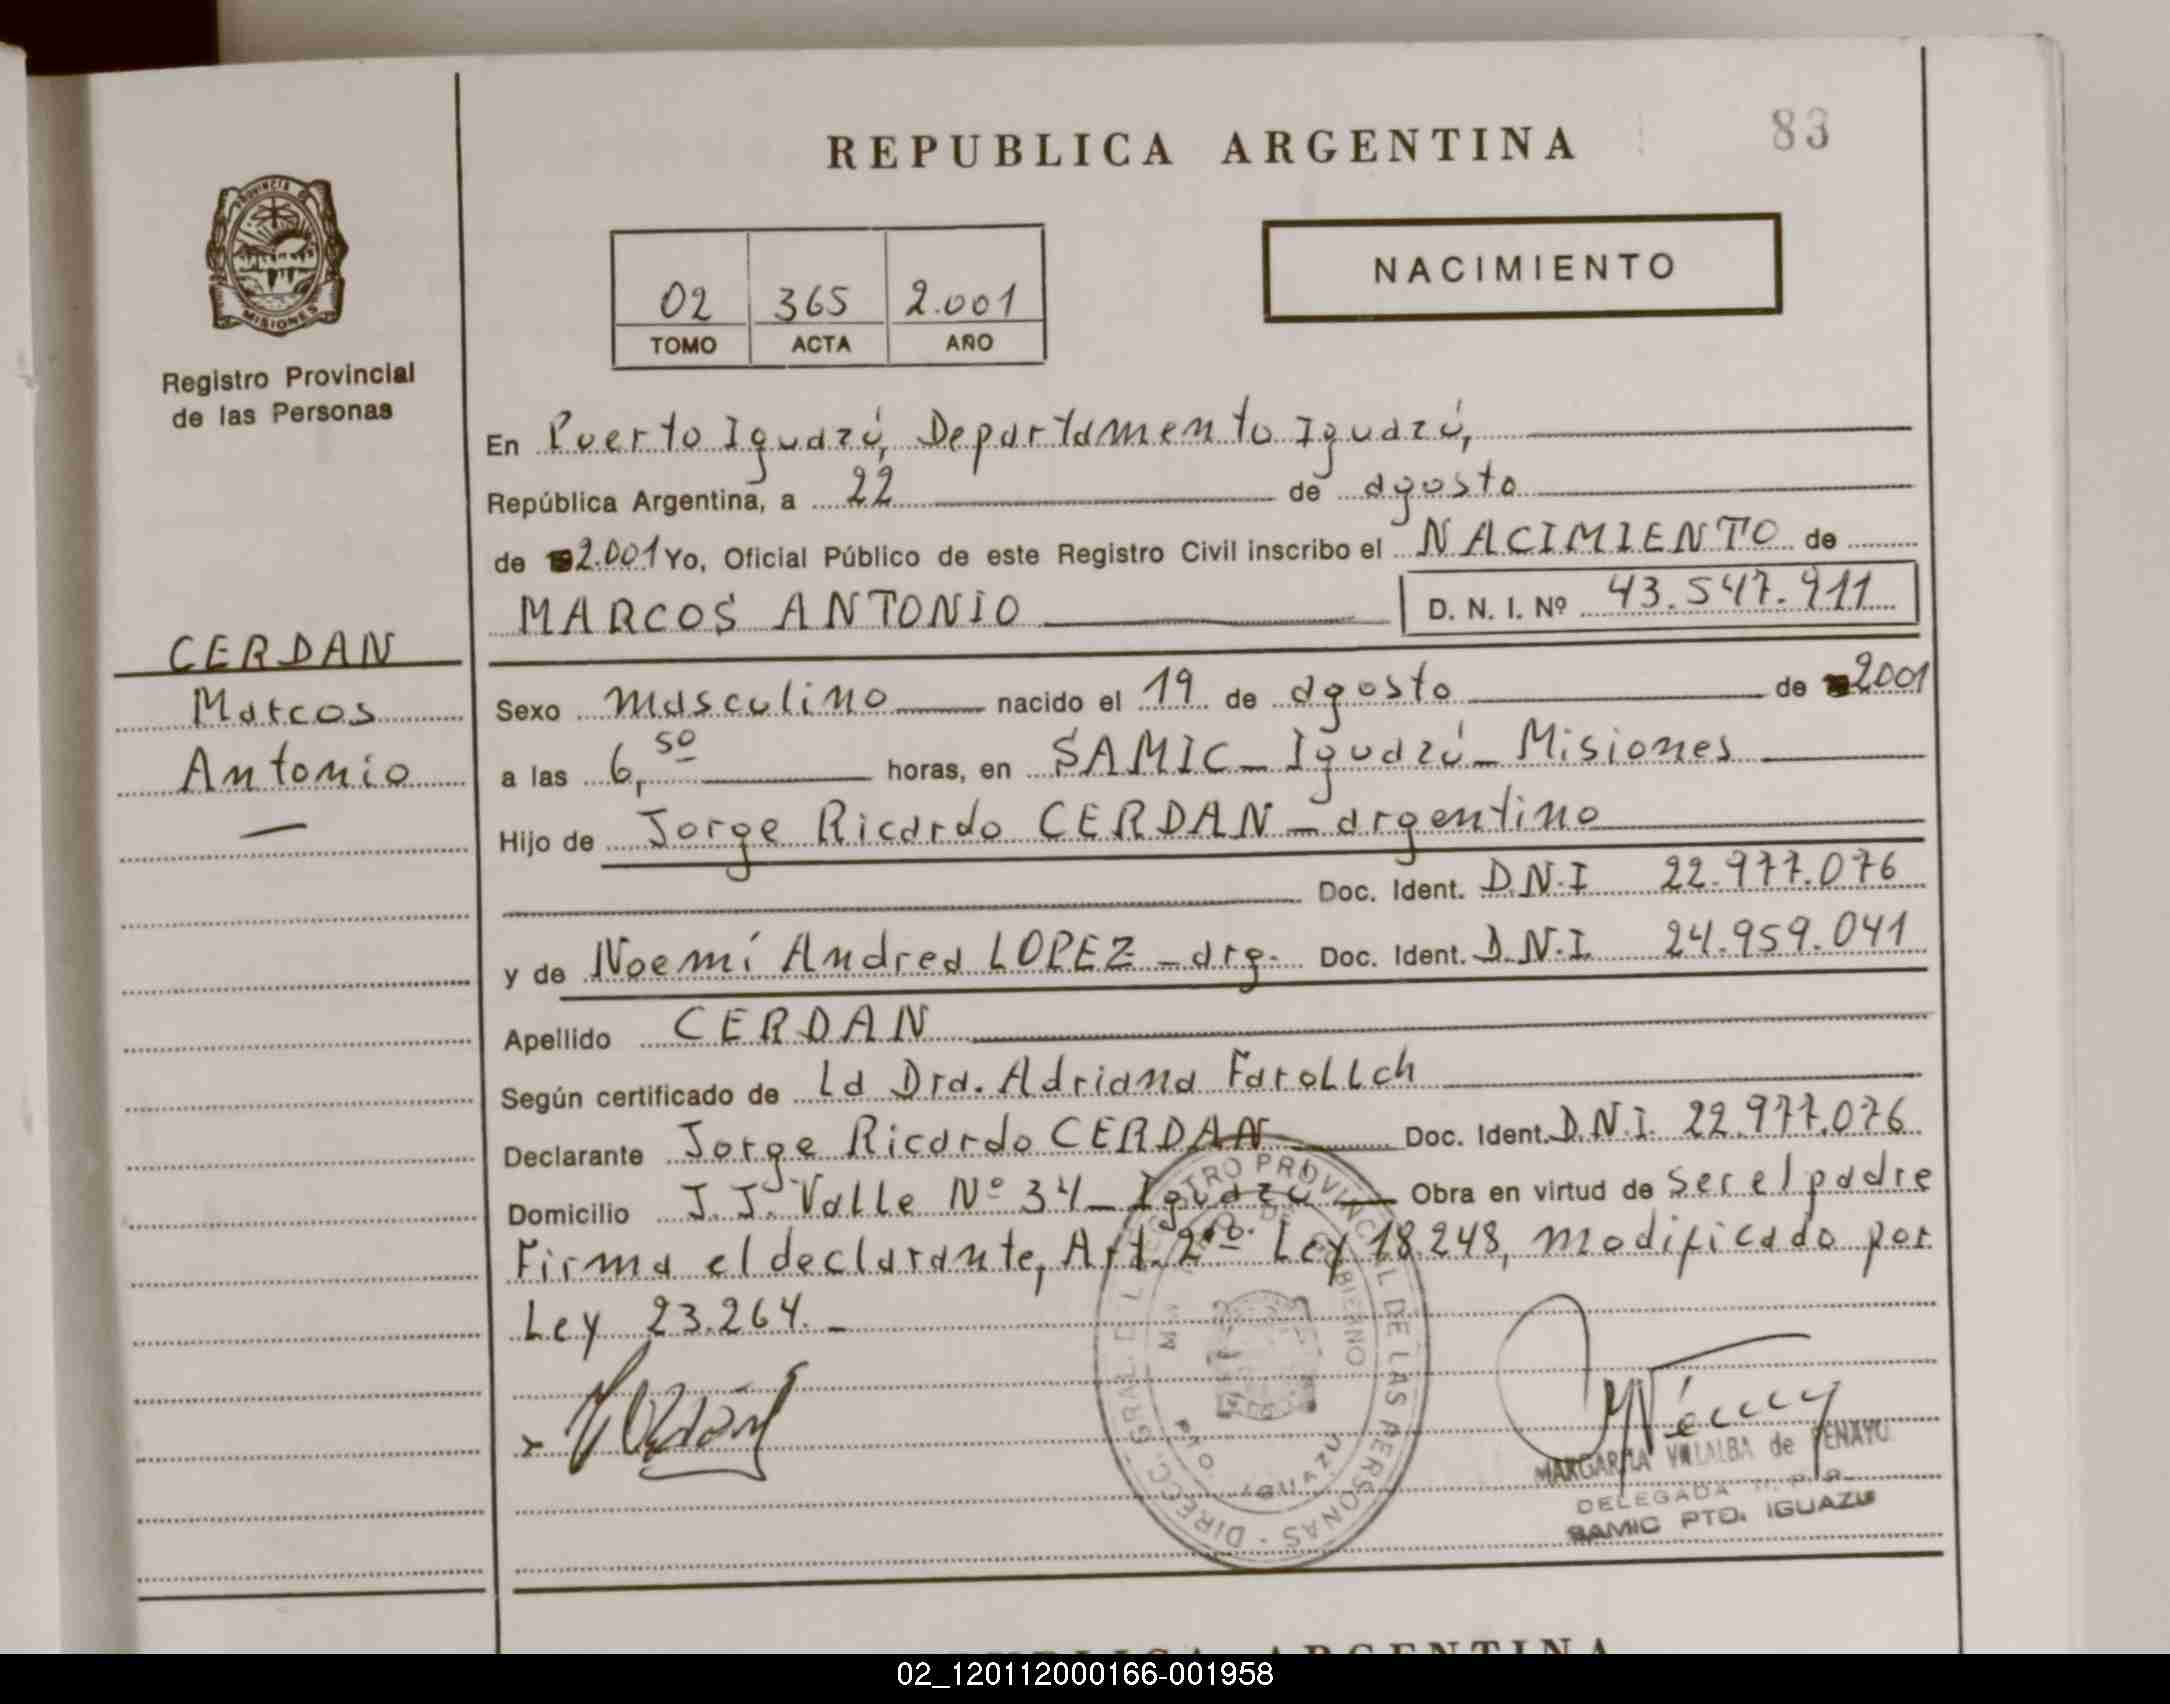 REPUBLICA ARGENTINA
83
PROVINCIA DE
MISIONES
Registro Provincial
de las Personas
02 365 2.001
TOMO ACTA AÑO
NACIMIENTO
En Puerto Iguazú, Departamento Iguazú,
República Argentina, a 22 de agosto
de 2.001 Yo, Oficial Público de este Registro Civil inscribo el NACIMIENTO de
MARCOS ANTONIO D. N. I. Nº 43.547.911
CERDAN
Marcos
Antonio
Sexo masculino nacido el 19 de agosto de 2001
a las 6,50 horas, en SAMIC - Iguazú - Misiones
Hijo de Jorge Ricardo CERDAN - argentino
Doc. Ident. D.N.I 22.977.076
y de Noemí Andrea LOPEZ - arg. Doc. Ident. D.N.I. 24.959.041
Apellido CERDAN
Según certificado de La Dra. Adriana Farollch
Declarante Jorge Ricardo CERDAN Doc. Ident. D.N.I. 22.977.076
Domicilio J.J. Valle Nº 34 - Iguazú Obra en virtud de ser el padre
Firma el declarante, Art. 2do. Ley 18.248, modificado por
Ley 23.264. -
DIRECC. GRAL. DEL REGISTRO PROVINCIAL DE LAS PERSONAS
DE GOBIERNO
PTO. IGUAZU
MARGARITA VILLALBA de PENAYO
DELEGADA
SAMIC PTO. IGUAZU
REPUBLICA ARGENTINA
02_120112000166-001958